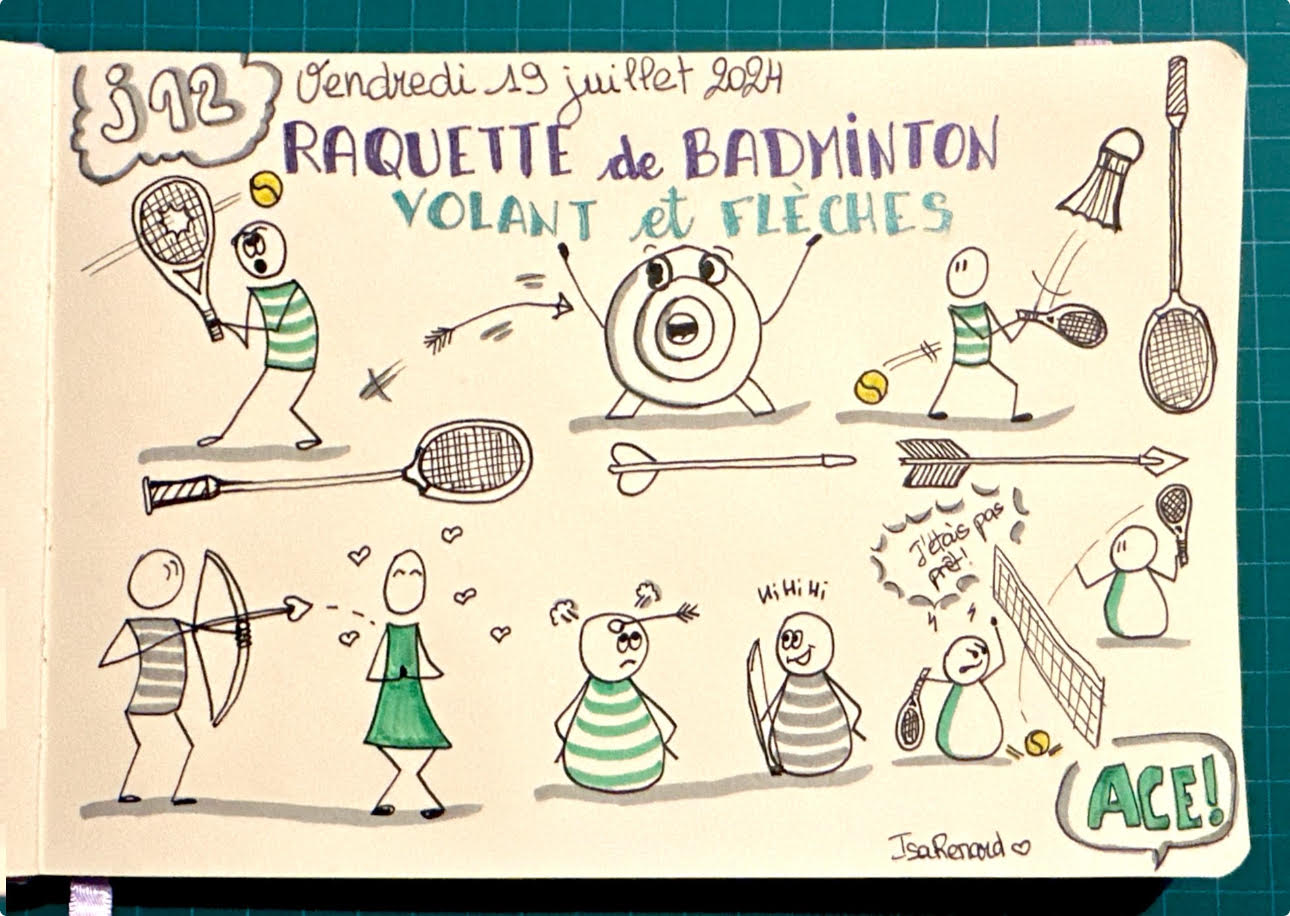 j12
Vendredi 19 juillet 2024
RAQUETTE de BADMINTON
VOLANT et FLÈCHES
J'étais pas
prêt!
Hi Hi Hi Hi
ACE!
IsaRenard